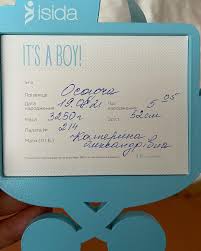 isida
IT'S A BOY!
Ім'я
Прізвище Осадча
Дата народження 19.08.21 Час народження 5 05
Вага 3250г Зріст 52см
Палата № 214
Мати (П.І.Б.) Катерина
Олександрівна